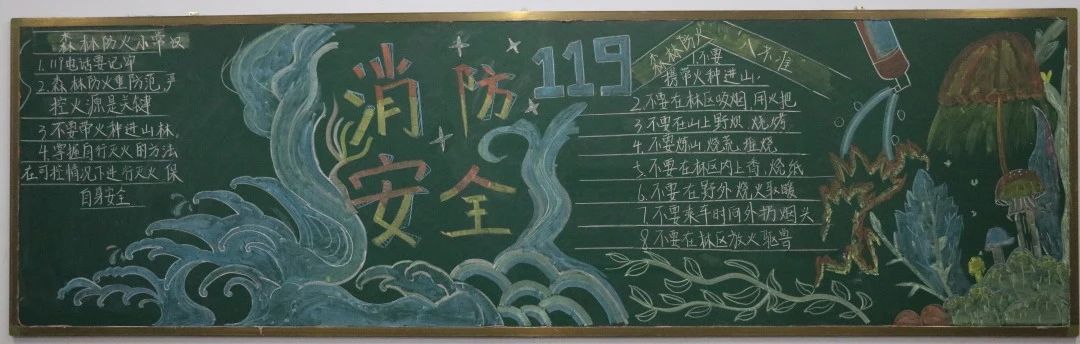 森林防火小常识
1.119电话要记牢
2.森林防火重防范,严
控火源是关键
3.不要带火种进山林,
4.掌握自行灭火的方法
在可控情况下进行灭火 保
自身安全
消防 119
安全
森林防火 "八不准"
1.不要
携带火种进山.
2.不要在林区吸烟、用火把
3.不要在山上野炊 烧烤
4.不要炼山 烧荒
5.不要在林区内上香、烧纸
6.不要在野外烧火取暖
7.不要乘车时向外扔烟头
8.不要在林区放火驱兽